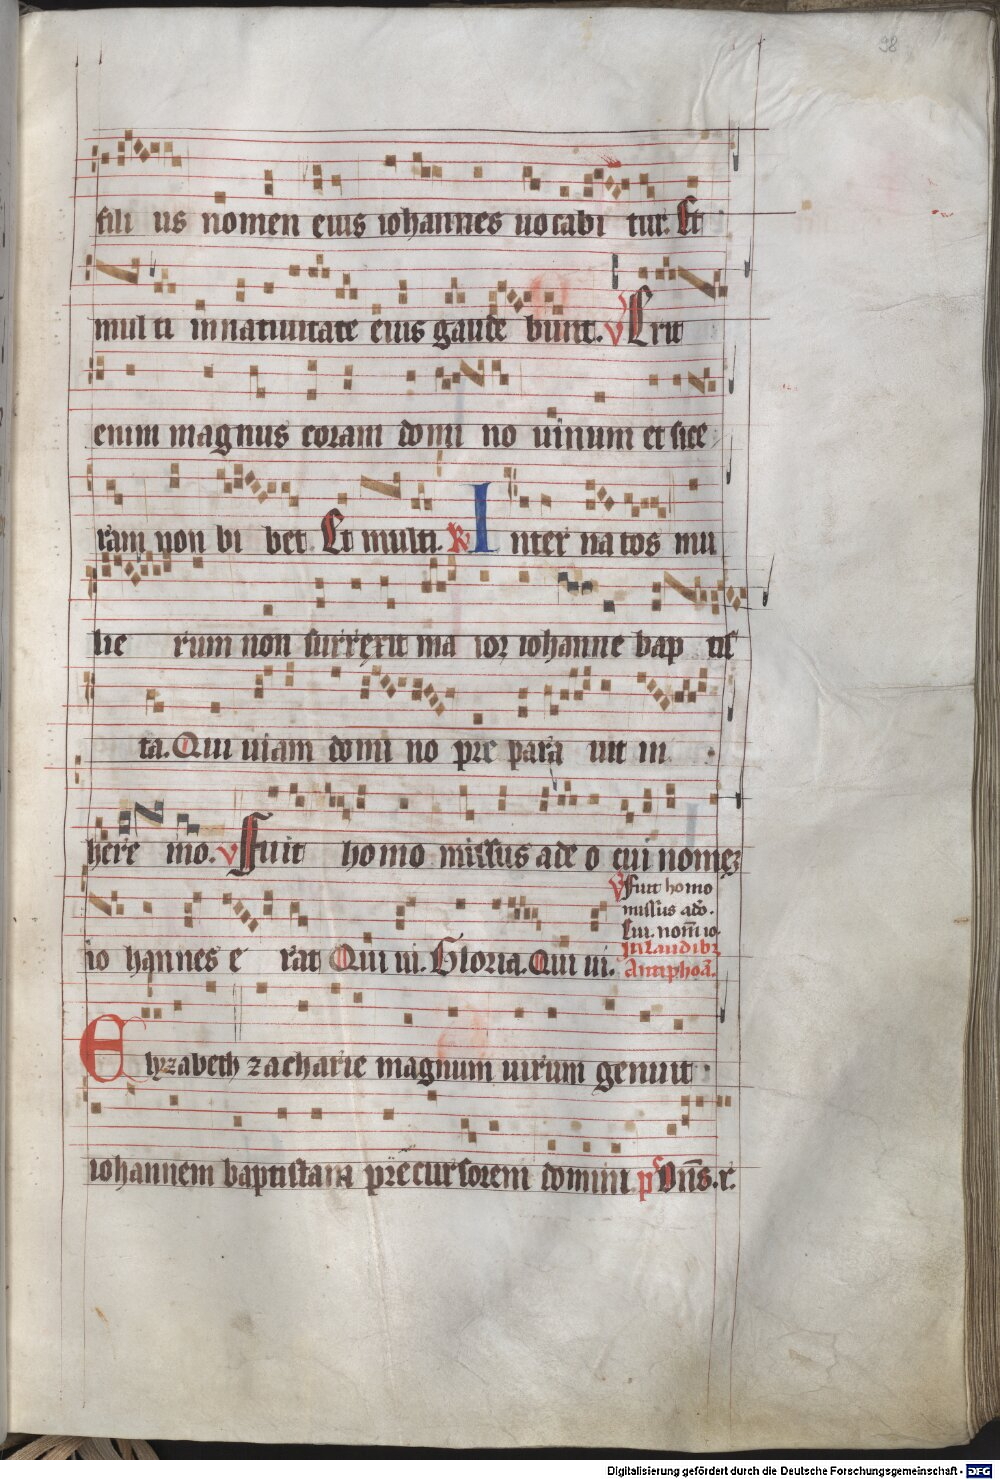 98
fili us nomen eius iohannes uocabi tur. Et
mul ti in natiuitate eius gaude bunt. V Erit
enim magnus coram domi no uinum et sice
ram non bi bet. Et multi. R Inter na tos mu
lie rum non surrexit ma ior iohanne bap tis
ta. Qui uiam domi no pre para uit in
here mo. V Fuit homo missus a de o cui nomen
V Fuit homo
missus a deo.
Cui. nom̄ io.
io hannes e rat Qui ui. Gloria. Qui ui.
In laudibꝫ
Antiphoā.
Elyzabeth zacharie magnum uirum genuit
iohannem baptistam precursorem domini. ps Dn̄s. r.
Digitalisierung gefördert durch die Deutsche Forschungsgemeinschaft - DFG